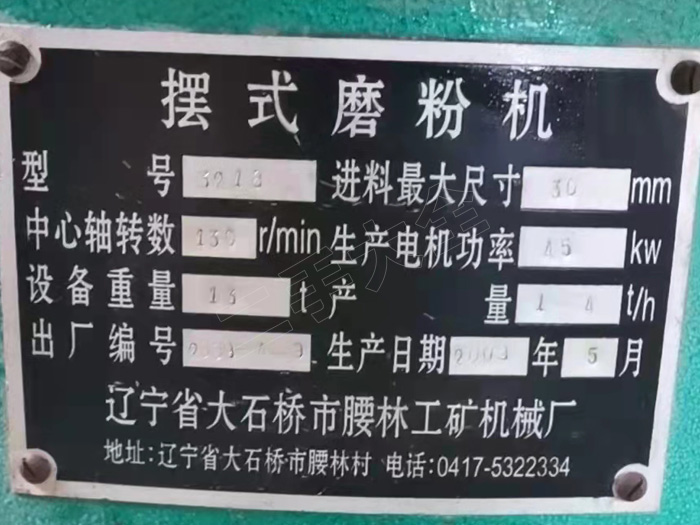 摆式磨粉机
型 号 3218 进料最大尺寸 30 mm
中心轴转数 130 r/min 生产电机功率 45 kw
设备重量 13 t 产 量 1 4 t/h
出厂编号 生产日期 2009 年 5 月
辽宁省大石桥市腰林工矿机械厂
地址:辽宁省大石桥市腰林村 电话:0417-5322334